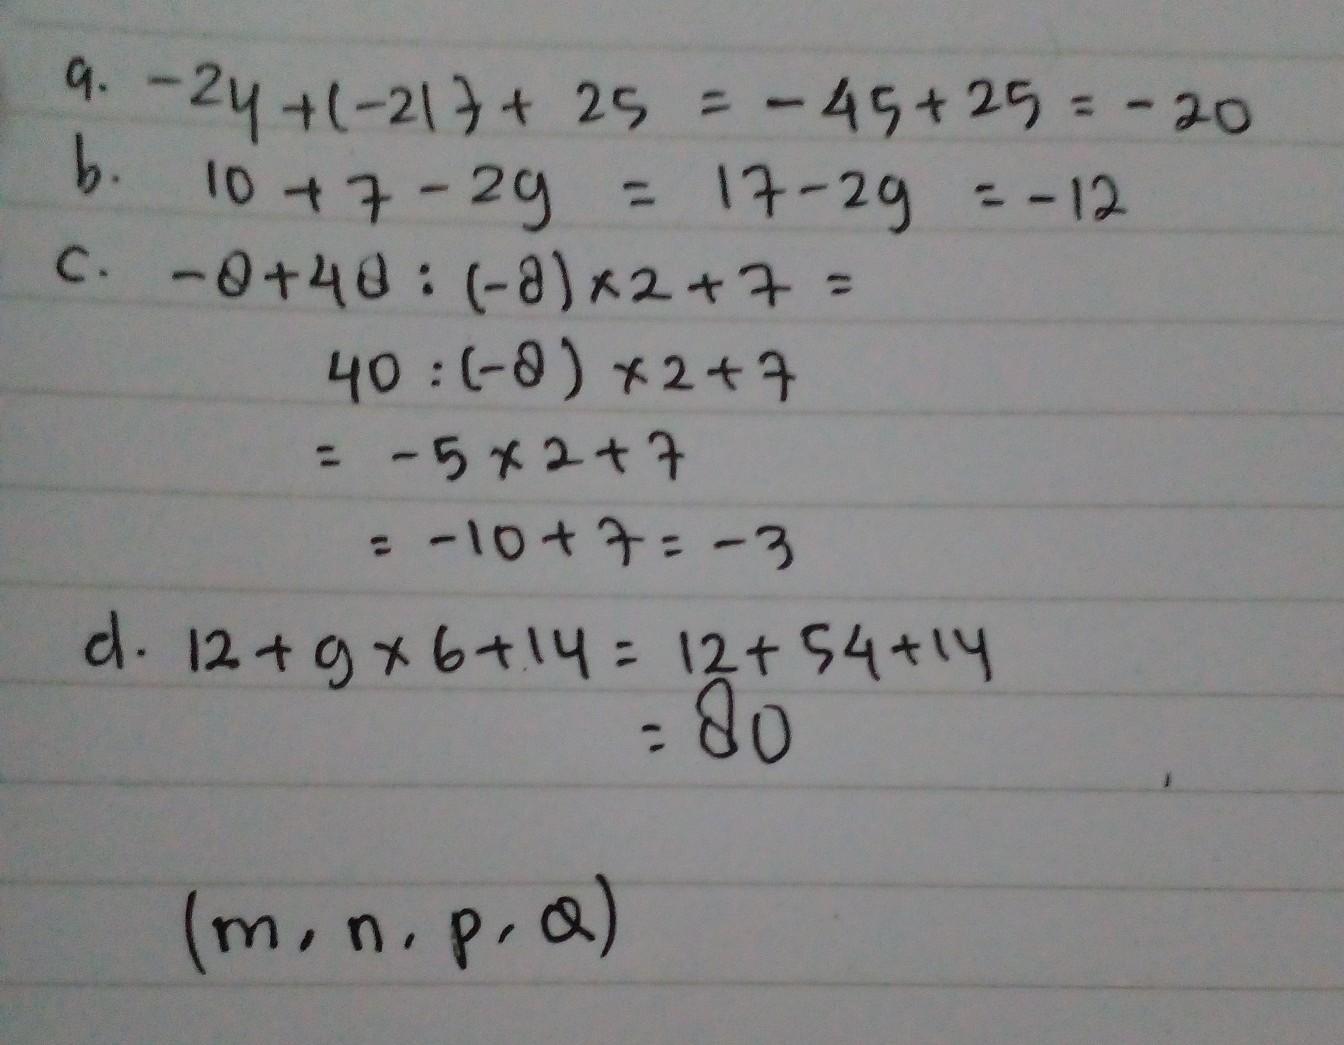 a. -24 + (-21) + 25 = -45 + 25 = -20
b. 10 + 7 - 29 = 17 - 29 = -12
c. -8 + 48 : (-8) × 2 + 7 =
40 : (-8) × 2 + 7
= -5 × 2 + 7
= -10 + 7 = -3
d. 12 + 9 × 6 + 14 = 12 + 54 + 14
= 80
(m, n, p, Q)